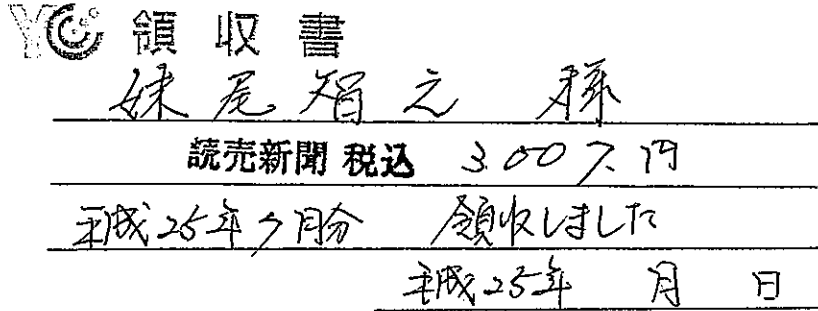 YC 領収書
妹尾智之 様
読売新聞 税込 3.007.円
平成25年5月分 領収しました
平成25年 月 日